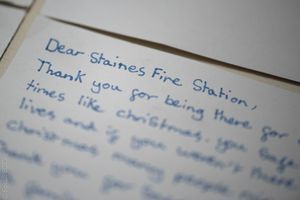 Dear Staines Fire Station,
Thank you for being there for
times like christmas. you
lives and if you weren't there
christmas many people
Thank you for